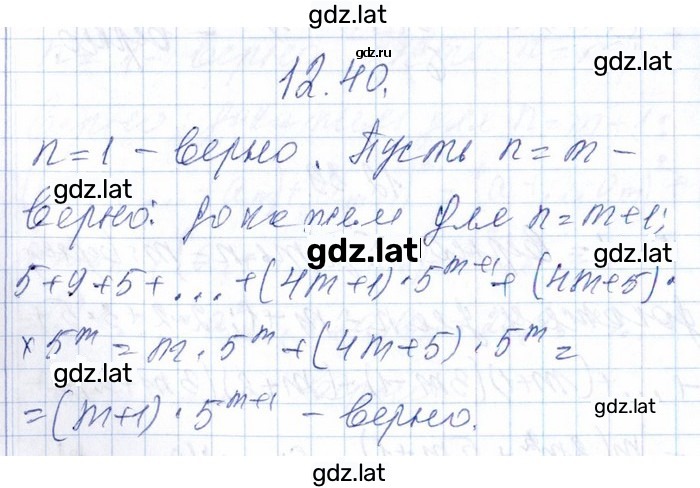 gdz.lat
gdz.ru
gdz.lat
12.40.
gdz.lat
n=1 – верно. Пусть n=m –
gdz.lat
верно: докажем для n=m+1;
gdz.lat
gdz.lat
5+9+5+...+(4m+1)·5^{m+1}+(4m+5)·
×5^m=m·5^m+(4m+5)·5^m=
gdz.lat
gdz.lat
=(m+1)·5^{m+1} – верно.
gdz.lat